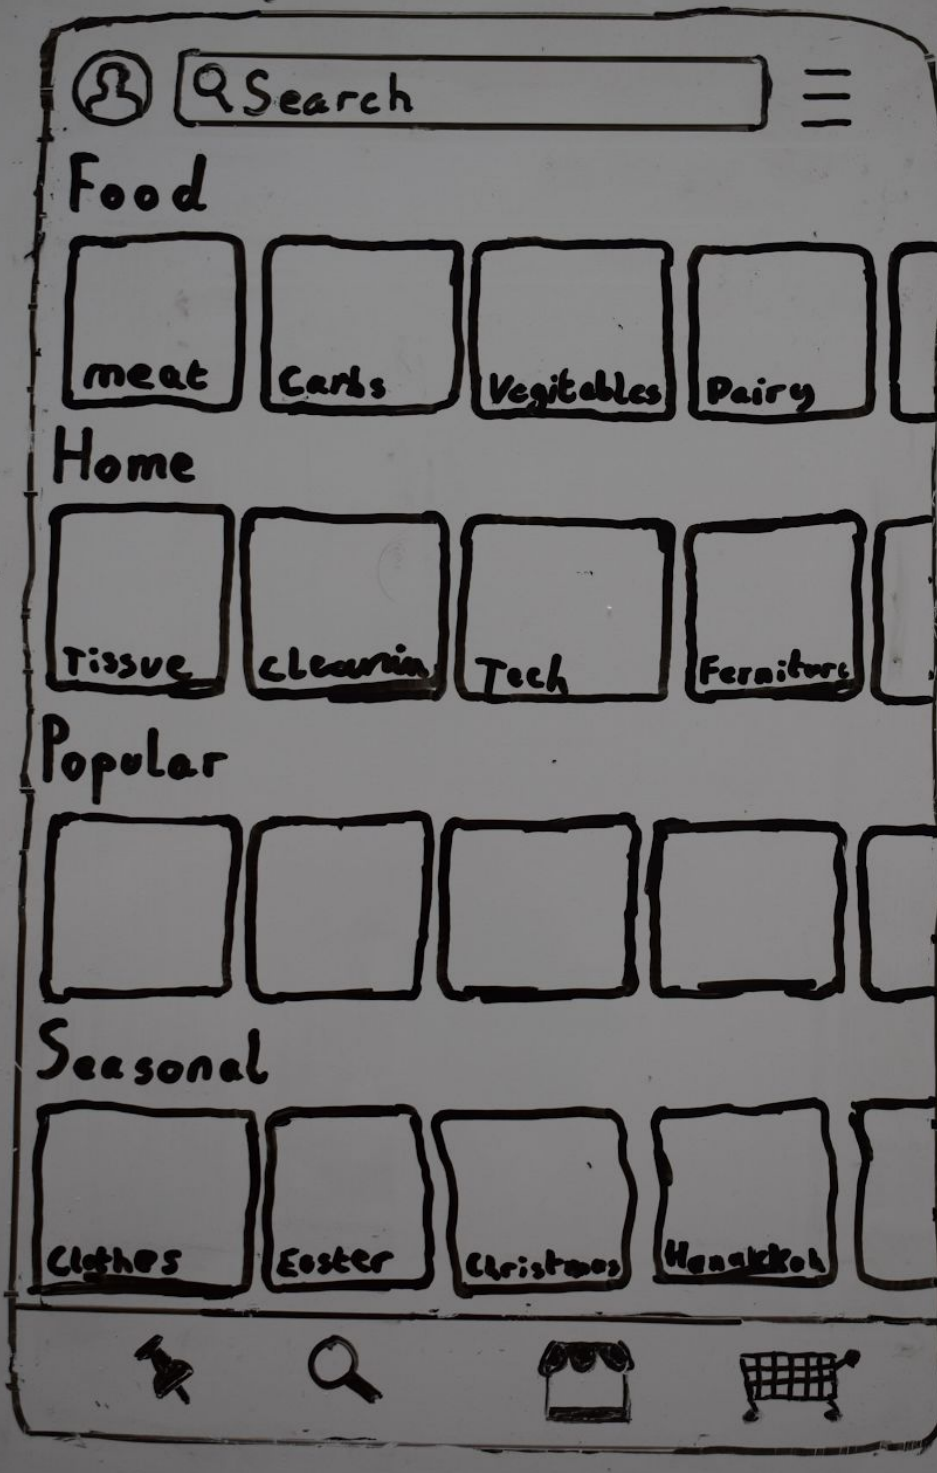 Search
Food
meat Carbs Vegitables Dairy
Home
Tissue Cleanin Tech Ferniture
Popular
Seasonal
Clothes Easter Christmas Hanakkah